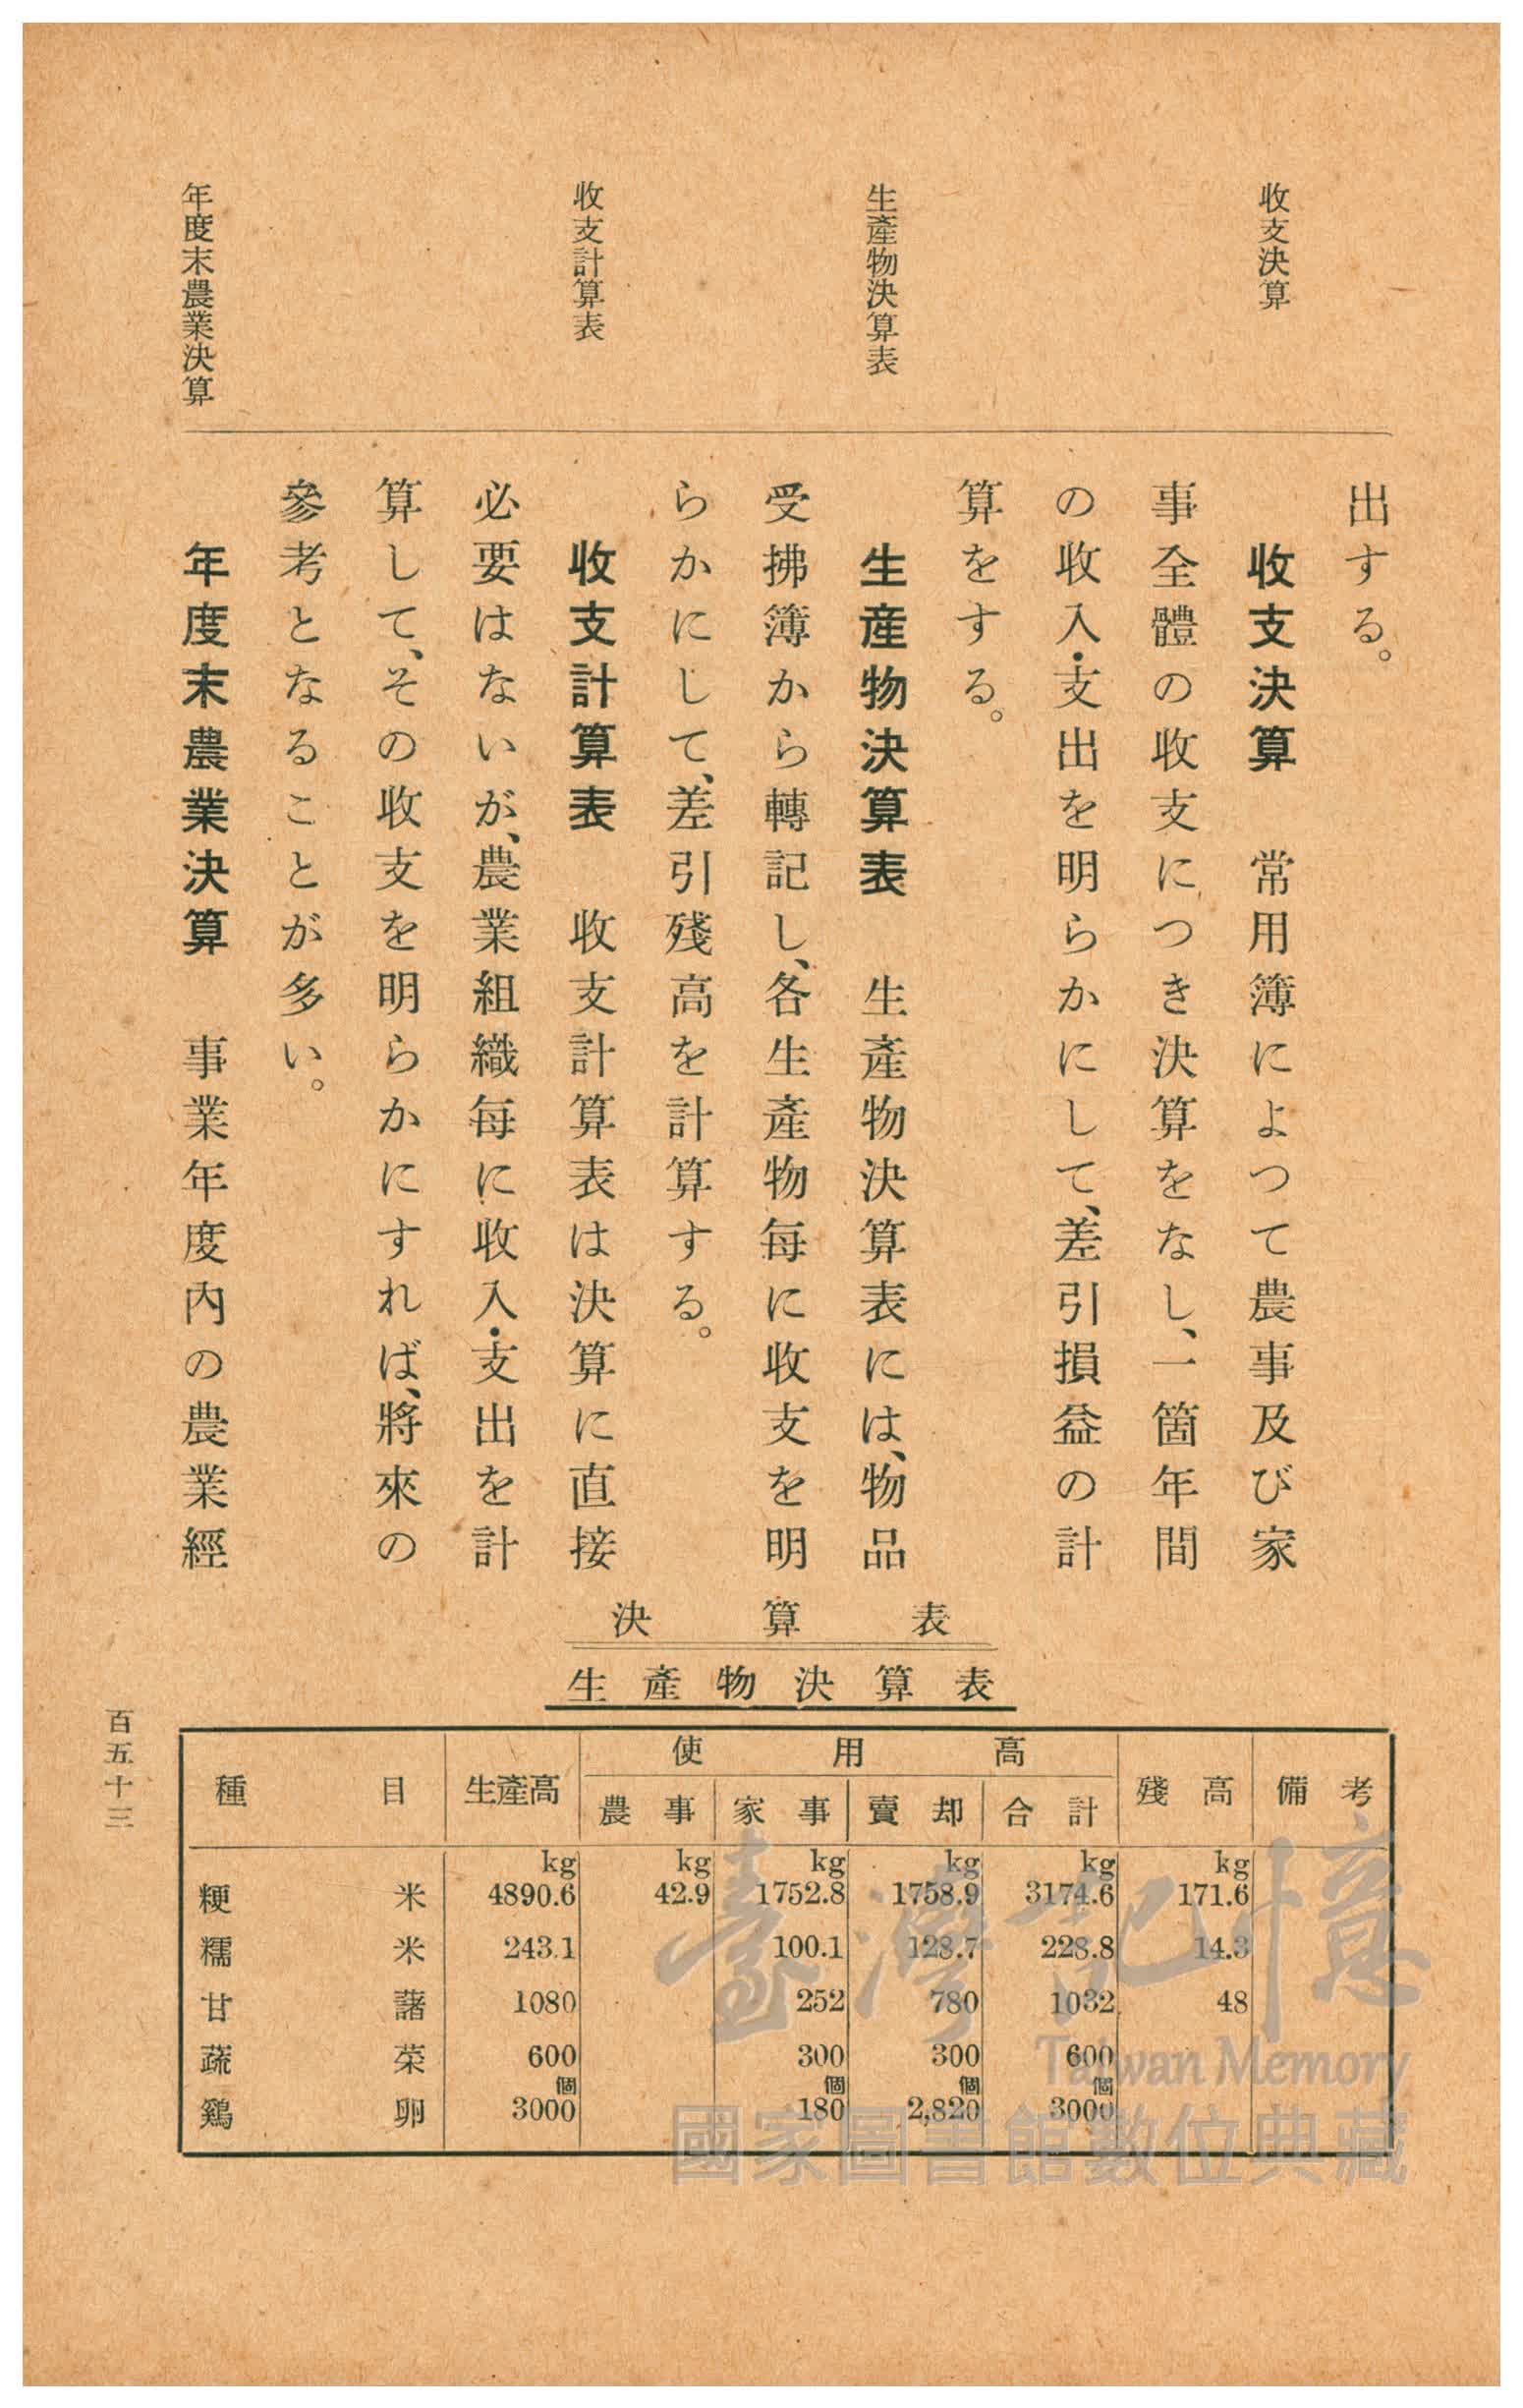 收支決算
生產物決算表
收支計算表
年度末農業決算
出する。
收支決算　常用簿によつて農事及び家
事全體の收支につき決算をなし、一箇年間
の收入・支出を明らかにして、差引損益の計
算をする。
生産物決算表　生產物決算表には、物品
受拂簿から轉記し、各生產物每に收支を明
らかにして、差引殘高を計算する。
收支計算表　收支計算表は決算に直接
必要はないが、農業組織每に收入・支出を計
算して、その收支を明らかにすれば、將來の
參考となることが多い。
年度末農業決算　事業年度內の農業經
決算表
生產物決算表
種目 生產高 使用高 殘高 備考
農事 家事 賣却 合計
kg kg kg kg kg kg
粳米 4890.6 42.9 1752.8 1758.9 3174.6 171.6
糯米 243.1 100.1 128.7 228.8 14.3
甘藷 1080 252 780 1032 48
蔬菜 600 300 300 600
個 個 個 個
鷄卵 3000 180 2,820 3000
百五十三
臺灣記憶
Taiwan Memory
國家圖書館數位典藏